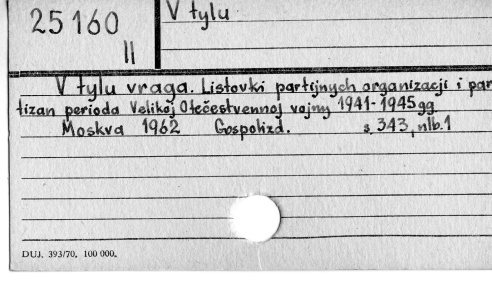 25160
II
V tylu
V tylu vraga. Listovki partijnych organizacji i par
tizan perioda Velikoj Otečestvennoj vojny 1941-1945gg
Moskva 1962 Gospolizd. s. 343, nlb. 1
DUJ. 393/70. 100 000.